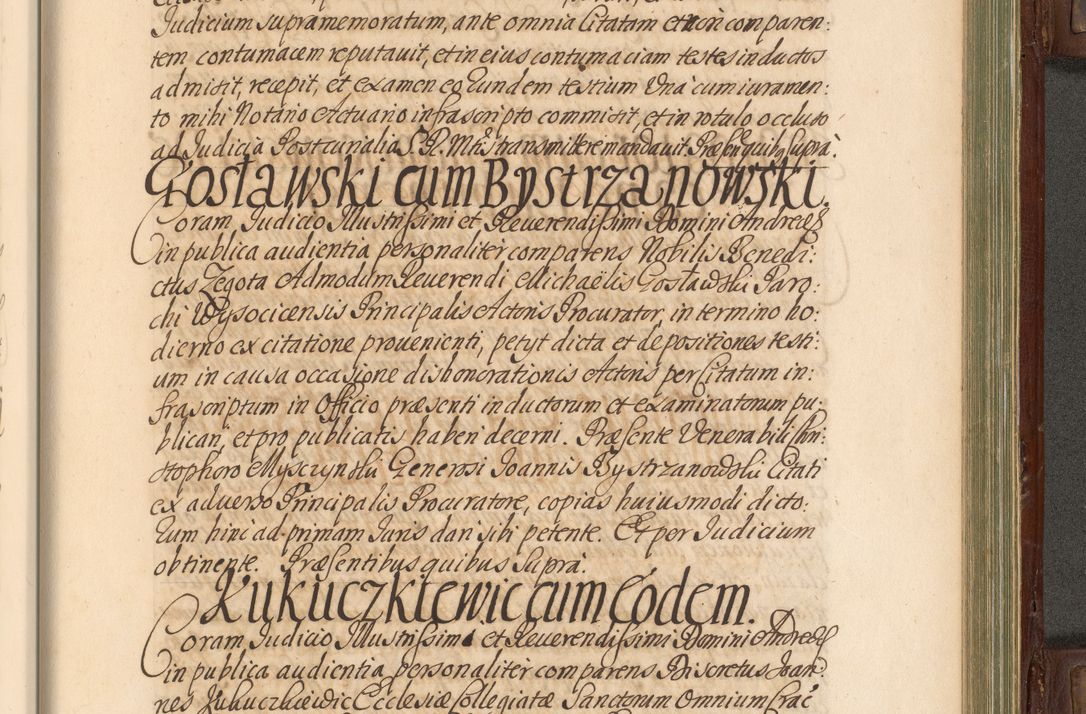 Judicium supramemoratum, ante omnia Citatam et non comparen:
tem contumacem reputavit, et in eius contumaciam testes inductos
admisit, recepit, et examen eorundem testium Una cum iuramen:
to mihi Notario Actuario infrascripto commisit, et in rotulo occluso
ad Judicia Postcurialia S. R. Mtis transmittere mandavit. Præsen: quibg supra.
Gosławski cum Bystrzanowski.
Coram Judicio Illustrissimi et Reverendissimi Domini Andreæ
in publica audientia personaliter comparens Nobilis Benedi:
ctus Zegota Admodum Reverendi Michaëlis Gosławski Paro:
chi Wysocicensis Principalis Actoris Procurator, in termino ho:
dierno ex citatione provenienti, petyt dicta et depositiones testi:
um in causa occasione dishonorationis Actoris per Citatum in:
frascriptum in Officio præsenti inductorum et examinatorum pu:
blicari, et pro publicatis haberi decerni. Præsente Venerabili Chri:
stophoro Myszczynski Generosi Joannis Bystrzanowski Citati
ex adverso Principalis Procuratore, copias huiusmodi dicto:
rum hinc ad primam Juris dari sibi petente. Et per Judicium
obtinente. Præsentibus quibus supra.
Kukuczkiewic cum Eodem.
Coram Judicio Illustrissimi et Reverendissimi Domini Andreæ
in publica audientia personaliter comparens Discretus Joan:
nes Kukuczkiewic Ecclesiæ Collegiatæ Sanctorum Omnium Crac